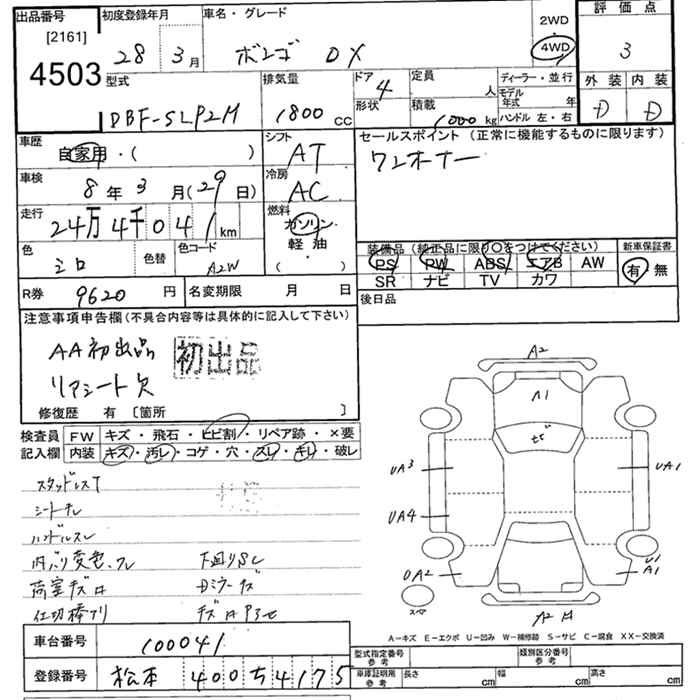 出品番号 初度登録年月 車名・グレード 2WD 評価点
[2161] 28年 3月 ボンゴ DX 4WD 3
4503
型式 排気量 ドア 4 定員 人 ディーラー・並行 外装 内装
DBF-SLP2M 1800 cc 形状 積載 1000 kg モデル年式 年 ハンドル 左・右 D D
車歴 自家用・( ) シフト AT セールスポイント (正常に機能するものに限ります)
車検 8年 3月(29日) 冷房 AC ワンオーナー
走行 24万4千041km 燃料 ガソリン 軽油 ( )
色 シロ 色替 色コード A2W
装備品 (純正品に限り○をつけてください) 新車保証書
PS PW ABS エアB AW 有・無
SR ナビ TV カワ
R券 9620円 名変期限 月 日 後日品
注意事項申告欄 (不具合内容等は具体的に記入して下さい)
AA初出品 初出品
リアシート欠
修復歴 有 〔箇所 〕
検査員 FW キズ・飛石・ヒビ割・リペア跡・×要
記入欄 内装 キズ・汚レ・コゲ・穴・スレ・キレ・破レ
スタッドレスT
シートテレ
ハンドルスレ
内バリ変色、スレ 下廻りSレ
荷室キズ凹 Dミラーキズ
仕切棒アリ
A2
A1
ヒビ
UA3 UA1
UA4
UA2 U1
A1
スペア
A-キズ E-エクボ U-凹み W-補修跡 S-サビ C-腐食 XX-交換済
車台番号 100041
登録番号 松本 400 ち 4175
型式指定番号 参考 類別区分番号 参考
車庫証明用 参考 長さ cm 幅 cm 高さ cm